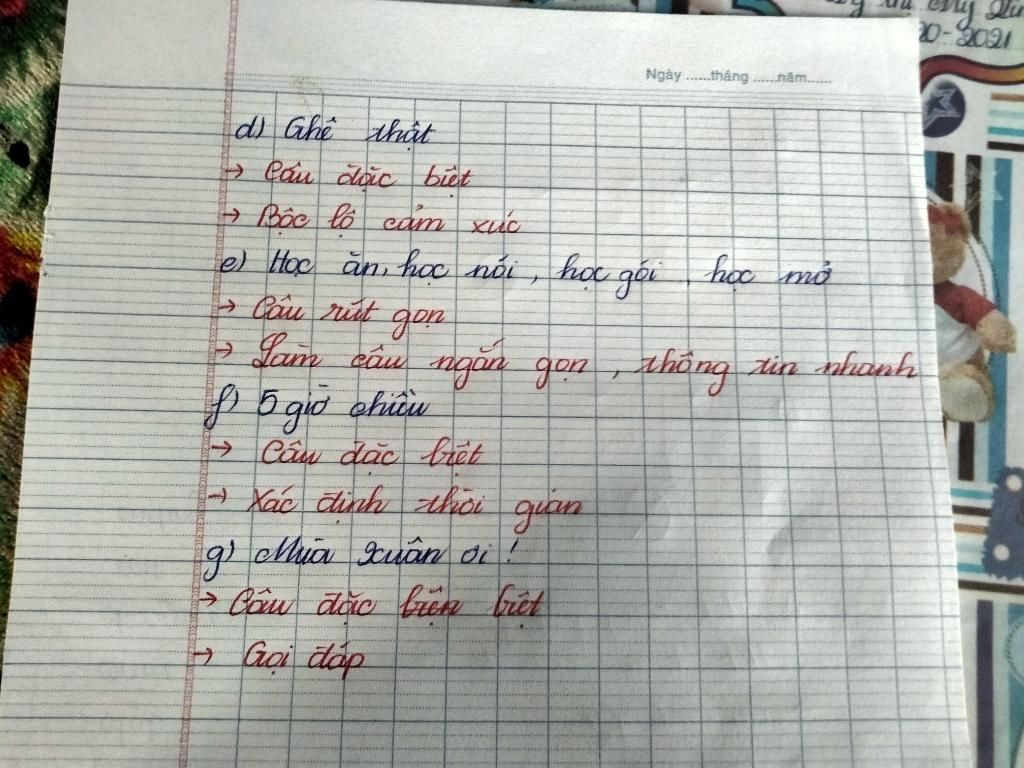 Ngày ......tháng ......năm......
20-2021
d) Ghê thật
→ Câu đặc biệt
→ Bộc lộ cảm xúc
e) Học ăn, học nói, học gói, học mở
→ Câu rút gọn
→ Làm câu ngắn gọn, thông tin nhanh
f) 5 giờ chiều
→ Câu đặc biệt
→ Xác định thời gian
g) Mùa xuân ơi!
→ Câu đặc biện biệt
→ Gọi đáp